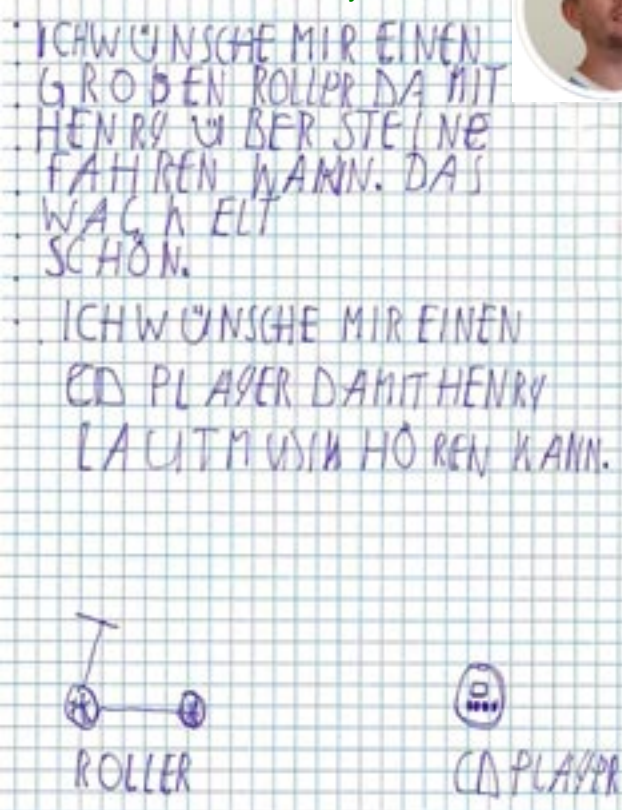 ICH WÜNSCHE MIR EINEN
GROßEN ROLLER DAMIT
HENRY ÜBER STEINE
FAHREN KANN. DAS
WACKELT
SCHÖN.
ICH WÜNSCHE MIR EINEN
CD PLAYER DAMIT HENRY
LAUT MUSIK HÖREN KANN.
ROLLER
CD PLAYER